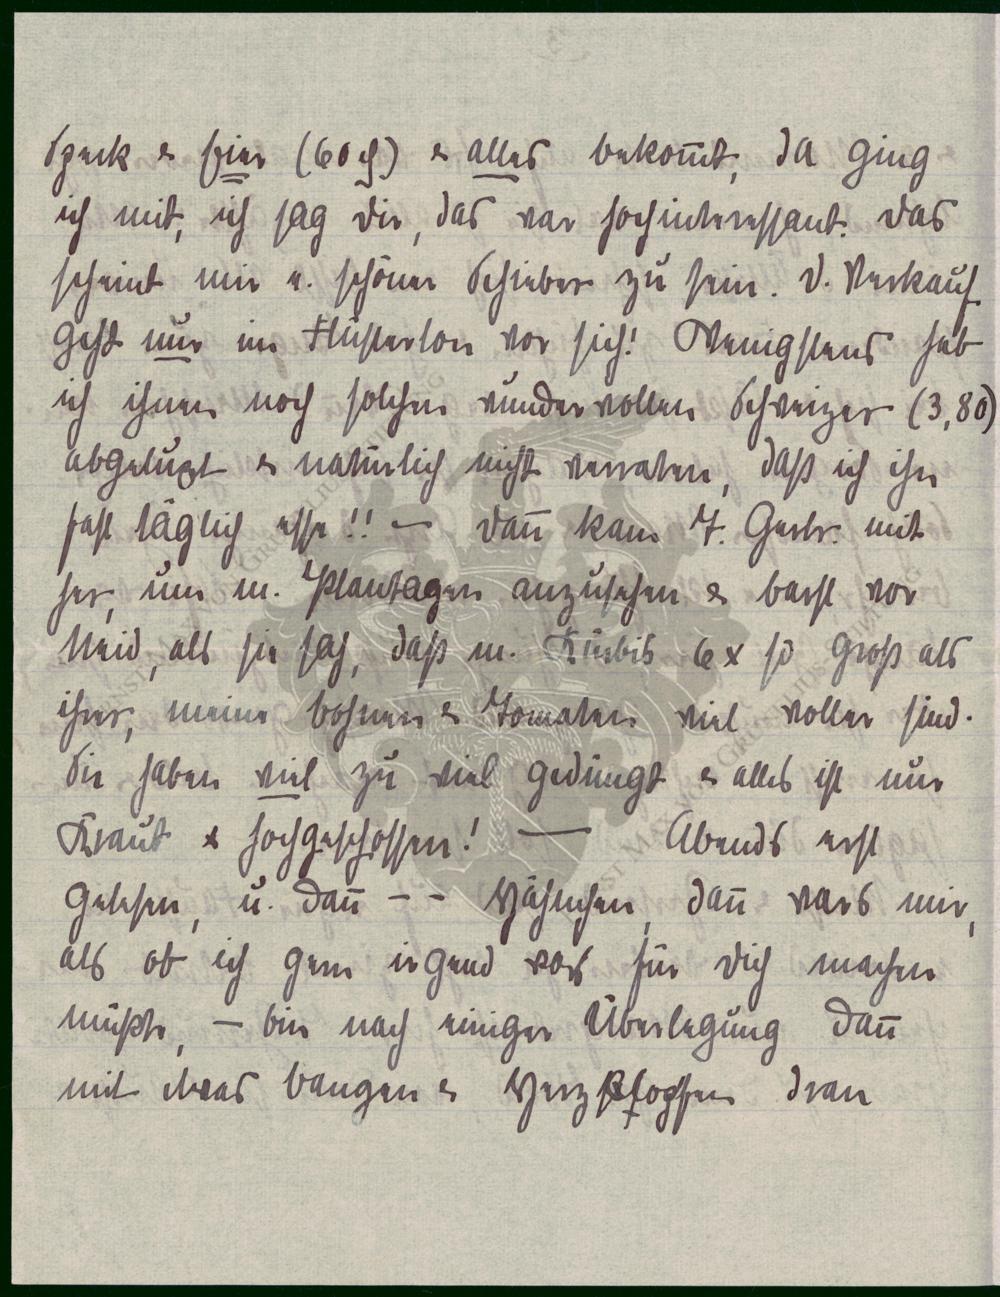 Speck & Eier (60 ₰) & alles bekom̅t, da ging
ich mit, ich sag Dir, das war hochinteressant. Das
scheint mir e. schöner Schieber zu sein. D. Verkauf
geht nur im Flüsterton vor sich! Wenigstens hab
ich ihnen noch solchen wundervollen Schweizer (3,80)
abgeluxt & natürlich nicht verraten, daß ich ihn
fast täglich esse!! — Dan̅ kam T. Gertr. mit
her, um m. Plantagen anzusehen & barst vor
Neid, als sie sah, daß m. Kürbis 6 x so groß als
ihrer, meine Bohnen & Tomaten viel voller sind.
Sie haben viel zu viel gedüngt & alles ist nur
Kraut & hochgeschossen! — Abends erst
gelesen, u. dan̅ - - Hähnchen, dan̅ wars mir,
als ob ich gern irgend was für Dich machen
müßte, — bin nach einiger Überlegung dan̅
mit etwas bangen & Herzklopfen dran